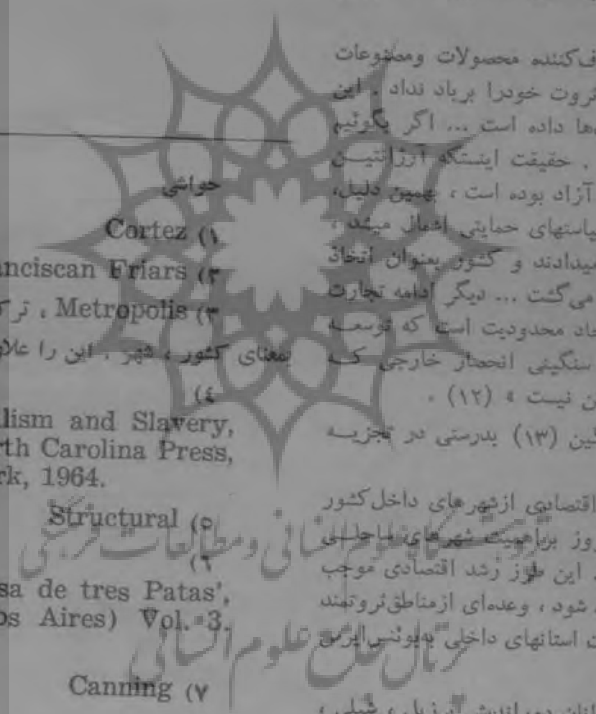 ف‌کننده محصولات ومصنوعات
ثروت خودرا برباد نداد . این
ها داده است ... اگر بگوئیم
. حقیقت اینستکه آرژانتیــن
آزاد بوده است ، بهمین دلیل،
سیاستهای حمایتی اعمال میشد ،
میدادند و کشور بعنوان اتخاذ
می‌گشت ... دیگر ادامه تجارت
جاد محدودیت است که توسعــه
سنگینی انحصار خارجی کــه
ن نیست » (۱۲) .
گین (۱۳) بدرستی در تجزیــه
اقتصادی ازشهرهای داخل‌کشور
روز براهمیت شهرهای ساحلــی
. این طرز رشد اقتصادی موجب
شود ، وعده‌ای ازمناطق‌ثروتمند
ت استانهای داخلی به‌بوئنس‌ایرس
حواشی
۱) Cortez
۲) nciscan Friars
۳) Metropolis ، ترک
بمعنای کشور ، شهر . این را علاو
۴)
lism and Slavery,
rth Carolina Press,
rk, 1964.
۵) Structural
۶)
sa de tres Patas',
os Aires) Vol. 3.
۷) Canning
پژوهشگاه علوم انسانی و مطالعات فرهنگی
پرتال جامع علوم انسانی